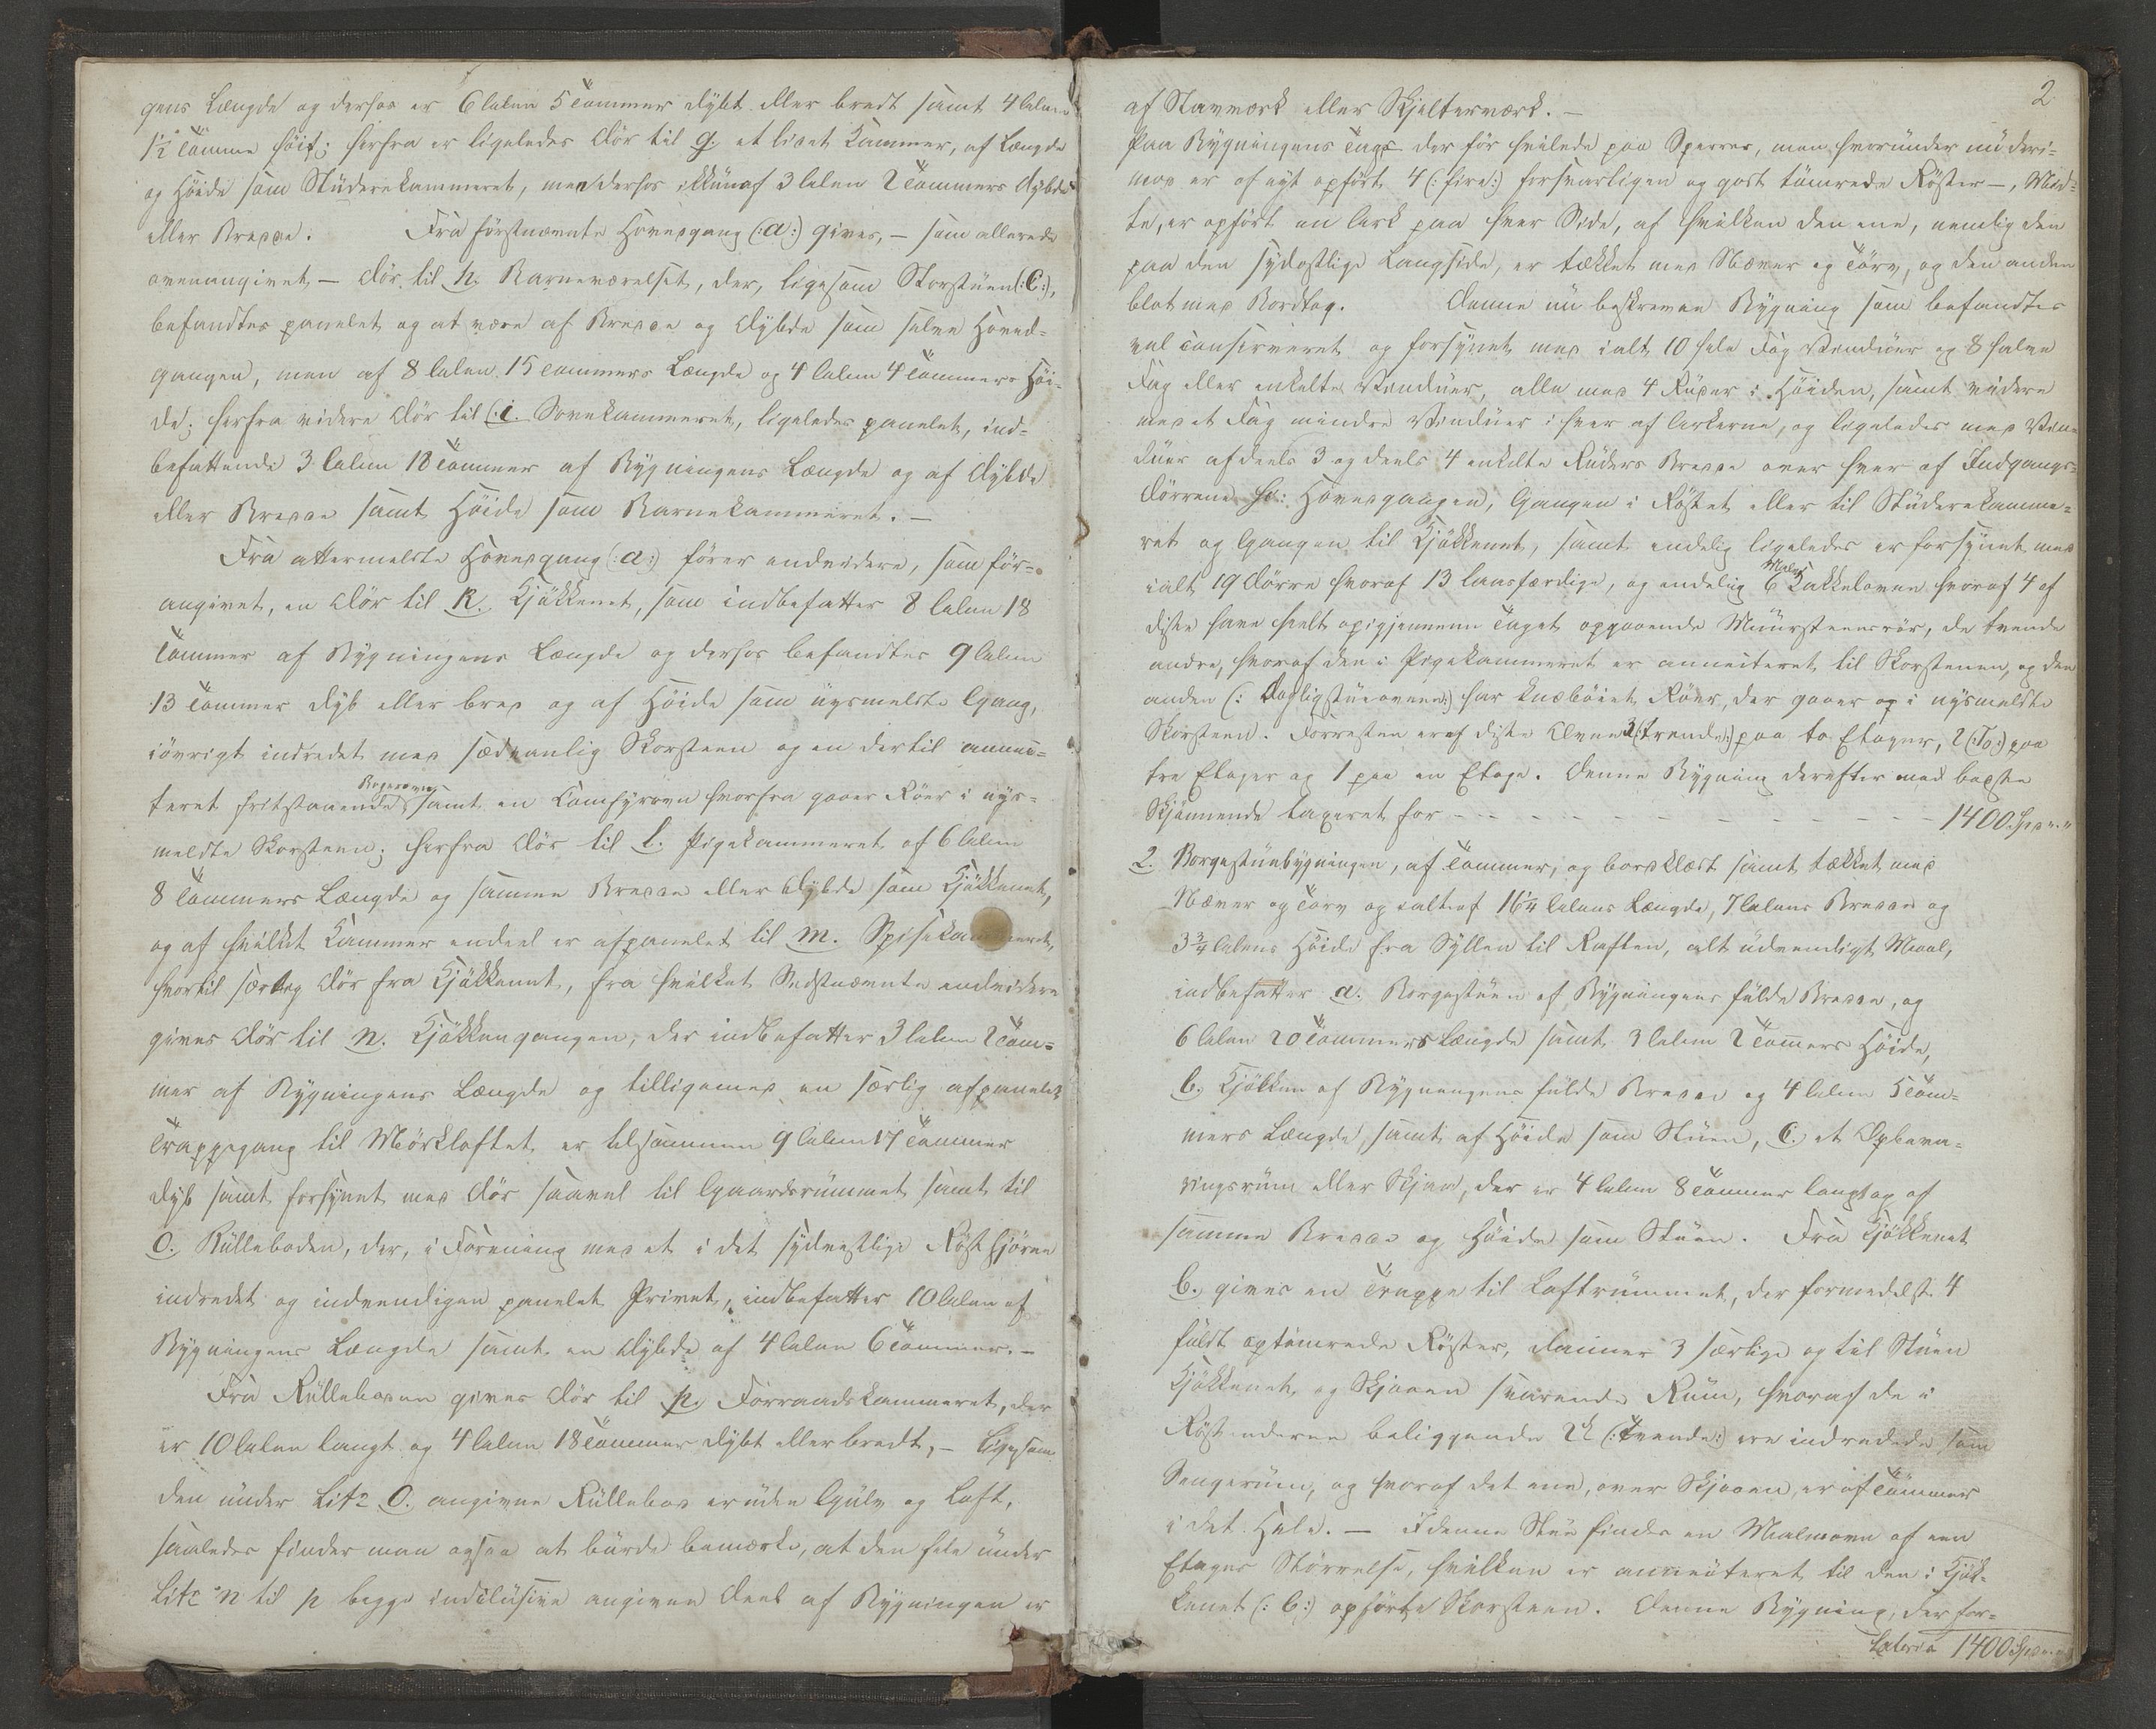 gens Længde og derhos er 6 Alen 5 Tommer dybt eller bredt samt 4 Alen
1½ Tomme høit; herfra er ligeledes Dör til g. et lidet Kammer, af Længde
og Höide som Studerekammeret, men derhos ikkun af 3 Alen 2 Tommers Dybde
eller Bredde. Fra förstnævnte Hovedgang (:a:) gives, – som allerede
ovenangivet – Dör til h. Barneværelset, der, ligesom Storstuen (:C:),
befandtes panelet og at være af Bredde og Dybde som selve Hoved-
gangen, men af 8 Alen 15 Tommers Længde og 4 Alen 4 Tommers Höi-
de; herfra videre Dör til (:i. Sovekammeret, ligeledes panelet, ind-
befattende 3 Alen 18 Tommer af Bygningens Længde og af Dybde
eller Bredde samt Höide som Barnekammeret. –
Fra attermeldte Hovedgang (:a:) förer endvidere, som för-
angivet, en Dör til K. Kjökkenet, som indbefatter 8 Alen 18
Tommer af Bygningens Længde og derhos befandtes 9 Alen
13 Tommer dyb eller bred og af Höide som nysmeldte Gang,
iövrigt indredet med sædvanlig Skorsteen og en dertil annec-
teret fritstaaende Bagerovn samt en Comfyrovn hvorfra gaaer Röer i nys-
meldte Skorsteen; herfra Dör til l. Pigekammeret af 6 Alen
8 Tommers Længde og samme Bredde eller Dybde som Kjökkenet,
og af hvilket Kammer endeel er afpanelet til m. Spisekammeret,
hvortil særlig Dör fra Kjökkenet, fra hvilket Sidstnævnte endvidere
gives Dör til n. Kjökkengangen, der indbefatter 3 Alen 2 Tom-
mer af Bygningens Længde og tilligemed en særlig afpanelet
Trappegang til Mörkloftet er tilsammen 9 Alen 17 Tommer
dyb samt forsynet med Dör saavel til Gaardsrummet samt til
O. Rulleboden, der, i Forening med et i det sydvestlige Röst hjörne
indredet og indvendigen panelet Privet, indbefatter 10 Alen af
Bygningens Længde samt en Dybde af 4 Alen 6 Tommer. –
Fra Rulleboden gives Dör til p. Forraadskammeret, der
er 10 Alen langt og 4 Alen 18 Tommer dybt eller bredt, – Ligesom
den under Litr O. angivne Rullebod er uden Gulv og Loft,
saaledes finder man ogsaa at burde bemærke, at den hele under
Litr n til p begge inclusive angivne Deel af Bygningen er
2
af Stavværk eller Skjelterværk. –
Paa Bygningens Tage der för hvilede paa Sperrer, men hvorunder nu deri-
mod er af nyt opfört 4 (:fire:) forsvarligen og godt tömrede Röster –, Mid-
te, er opfört en Ark paa hver Side, af hvilken den ene, nemlig den
paa den sydostlige Langside, er tækket med Næver og Törv, og den anden
blot med Bordtag. Denne nu beskrevne Bygning som befandtes
vel conserveret og forsynet med ialt 10 hele Fag Vinduer og 8 halve
Fag eller enkelte Vinduer, alle med 4 Ruder i Höiden, samt videre
med et Fag mindre Vinduer i hver af Arkerne, og ligeledes med Vin-
duer af deels 3 og deels 4 enkelte Ruders Bredde over hver af Indgangs-
dörrene so: Hovedgangen, Gangen i Röstet eller til Studerekamme-
ret og Gangen til Kjökkenet, samt endelig ligeledes er forsynet med
ialt 19 Dörre hvoraf 13 laasfærdige, og endelig 6 Malm Kakkelovne hvoraf 4 af
disse have helt op igjennem Taget opgaaende Muursteensrör, de tvende
andre, hvoraf den i Pigekammeret er annecteret til Skorstenen, og den
anden (: Dagligstueovnen:) har knæböiet Röer, der gaaer op i nysmeldte
Skorsteen. Forresten er af disse Ovne 3 (:trende:) paa to Etager, 2 (:To:) paa
tre Etager og 1 paa en Etage. Denne Bygning derefter med bedste
Skjönnende taxeret for - - - - - - - - - - 1400 Spd „ „
2. Borgestuebygningen, af Tömmer, og bordklædt samt tækket med
Næver og Törv og ialt af 16¼ Alens Længde, 7 Alens Bredde og
3¾ Alens Höide fra Syllen til Raften, alt udvendigt Maal,
indbefatter a. Borgestuen af Bygningens fulde Bredde, og
6 Alen 20 Tommers Længde samt 3 Alen 2 Tommers Höide,
b. Kjökken af Bygningens fulde Bredde og 4 Alen 5 Tom-
mers Længde, samt af Höide som Stuen, C. et Opbeva-
ringsrum eller Skjaa, der er 4 Alen 8 Tommer langt og af
samme Bredde og Höide som Stuen. Fra Kjökkenet
b. gives en Trappe til Loftrummet, der formedelst 4
fuldt optömrede Röster, danner 3 særlige og til Stuen
Kjökkenet, og Skjaaen svarende Rum, hvoraf de i
Röstenderne beliggende 2de (:tvende:) ere indredede som
Sengerum, og hvoraf det ene, over Skjaaen, er af Tömmer
i det Hele. – I denne Stue findes en Malmovn af een
Etages Störrelse, hvilken er annecteret til den i Kjök-
kenet (:b:) opförte Skorsteen. Denne Bygning, der for-
Lateris 1400 Spd „ „